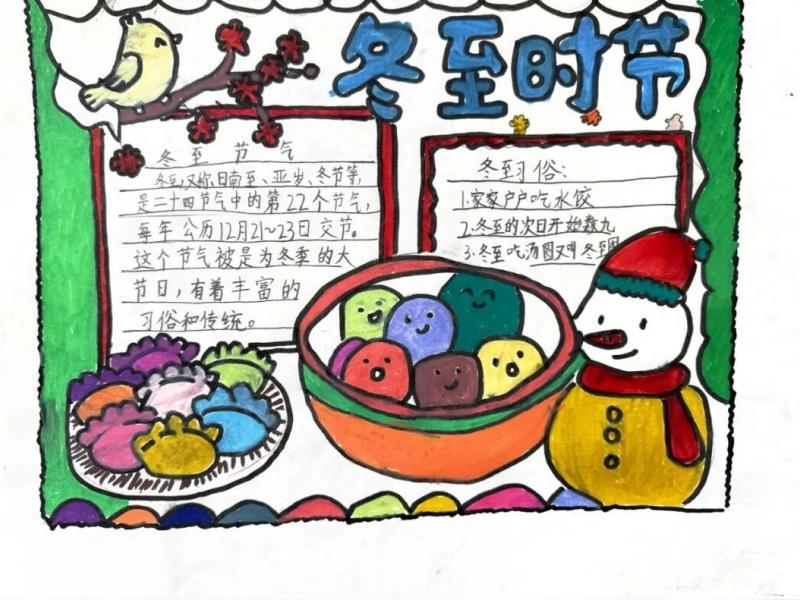 冬至时节
冬至节气
冬至,又称日南至、亚岁、冬节等,
是二十四节气中的第22个节气,
每年公历12月21~23日交节。
这个节气被是为冬季的大
节日,有着丰富的
习俗和传统。
冬至习俗:
1.家家户户吃水饺
2.冬至的次日开始数九
3.冬至吃汤圆又叫冬至